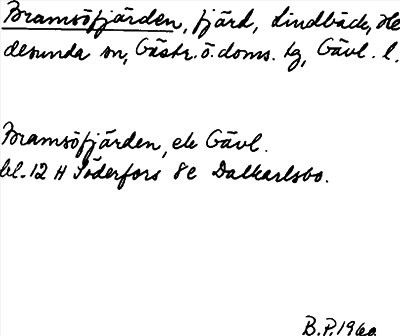 Bramsöfjärden, fjärd, Lindbäck, He
desunda sn, Gästr. ö. doms. tg, Gävl. l.
Bramsöfjärden, ek Gävl.
bl. 12 H Söderfors 8e Dalkarlsbo.
B.P. 1960